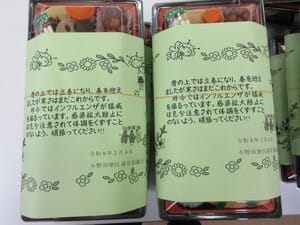 暦の上では立春になり、春を迎え
ましたが寒さはまだこれからです。
昨今ではインフルエンザが猛威
を振るっています。感染拡大防止に
は充分注意されて体調をくずすこと
のないよう、頑張ってください!!
令和6年2月4日
小野田地区
暦の上では立春になり、春を迎え
ましたが寒さはまだこれからです。
昨今ではインフルエンザが猛威
を振るっています。感染拡大防止に
は充分注意されて体調をくずすこと
のないよう、頑張ってください!!
令和6年2月4日
小野田地区